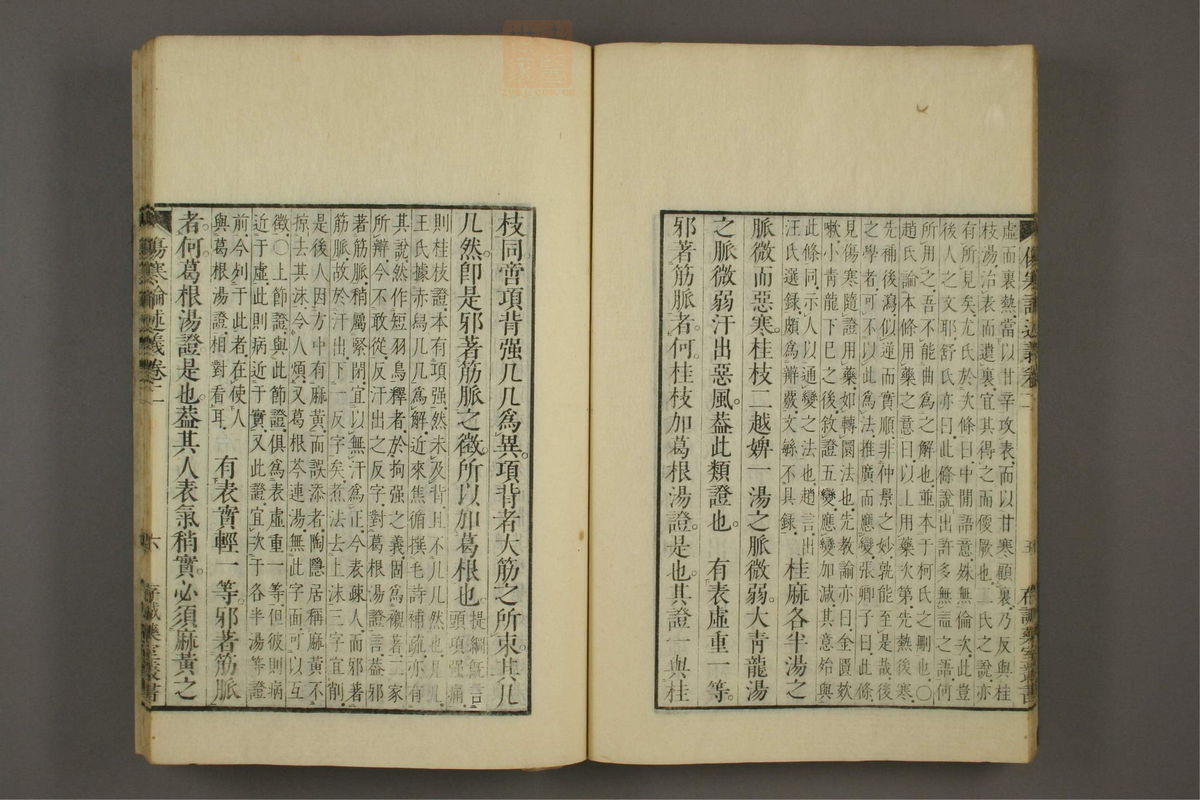 虛而裏熱當以甘辛攻表而以甘寒顧裏乃反與桂
枝湯治表而遺裏宜其得之而便厥也二氏之說亦
有所見矣尤氏於次條曰中間語意殊無倫次此豈
後人之文耶舒氏亦曰此條說出許多無益之語何
所用之吾不能曲爲之解也並本于柯氏之刪也〇
趙氏論本條用藥之意曰以上用藥次第先熱後寒
先補後瀉似逆而實順非仲景之妙孰能至是哉後
之學者可不以此爲法推廣而應變張卿子曰此條
見傷寒隨證用藥如轉圜法也先教諭亦曰金匱欬
嗽小青龍下已之後敘證五變應變加減其意殆與
此條同示人以通變之法也趙言出
汪氏選錄頗爲辯覈文緐不具錄
桂麻各半湯之
脈微而惡寒桂枝二越婢一湯之脈微弱大青龍湯
之脈微弱汗出惡風葢此類證也 有表虛重一等
邪著筋脈者何桂枝加葛根湯證是也其證一與桂
傷寒論述義卷二
五
存誠藥室叢書
枝同啻項背强几几爲異項背者大筋之所束其几
几然卽是邪著筋脈之徵所以加葛根也
提綱旣言
頭項强痛
則桂枝證本有項强然未及背且不几几然也几几
王氏據赤舄几几爲解近來焦循撰毛詩補疏亦有
其說然作短羽鳥釋者於拘强之義固爲襯著二家
所辯今不敢從反汗出之反字對葛根湯證言葢邪
著筋脈稍屬緊閉宜以無汗爲正今表疎人而邪著
筋脈故於汗出下一反字矣煮法去上沫三字宜削
是後人因方中有麻黃而誤添者陶隱居稱麻黃不
掠去其沫令人煩又葛根芩連湯無此字面可以互
徵〇上節證與此節證俱爲表虛重一等但彼則病
近于虛此則病近于實又此證宜次于各半湯等證
前今列于此者在使人
與葛根湯證相對看耳
有表實輕一等邪著筋脈
者何葛根湯證是也葢其人表氣稍實必須麻黃之
傷寒論述義卷二
六
存誠藥室叢書